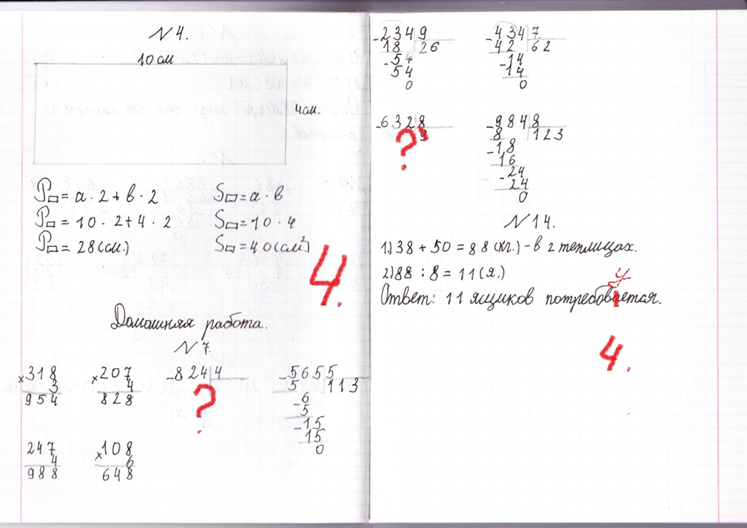 N 4.
10 см
4 см.
P▭ = a · 2 + b · 2
S▭ = a · b
P▭ = 10 · 2 + 4 · 2
S▭ = 10 · 4
P▭ = 28 (см.)
S▭ = 40 (см².)
4.
Домашняя работа.
N 7.
× 318
3
954
× 207
4
828
- 824 | 4
?
- 565 | 5
5 | 113
- 6
5
- 15
15
0
247
4
988
× 108
6
648
- 234 | 9
18 | 26
- 54
54
0
- 434 | 7
42 | 62
- 14
14
0
- 632 | 8
9
?
- 984 | 8
8 | 123
- 18
16
- 24
24
0
N 14.
1) 38 + 50 = 88 (кг.) - в 2 теплицах.
2) 88 : 8 = 11 (я.)
Ответ: 11 ящиков потребовается.
4.